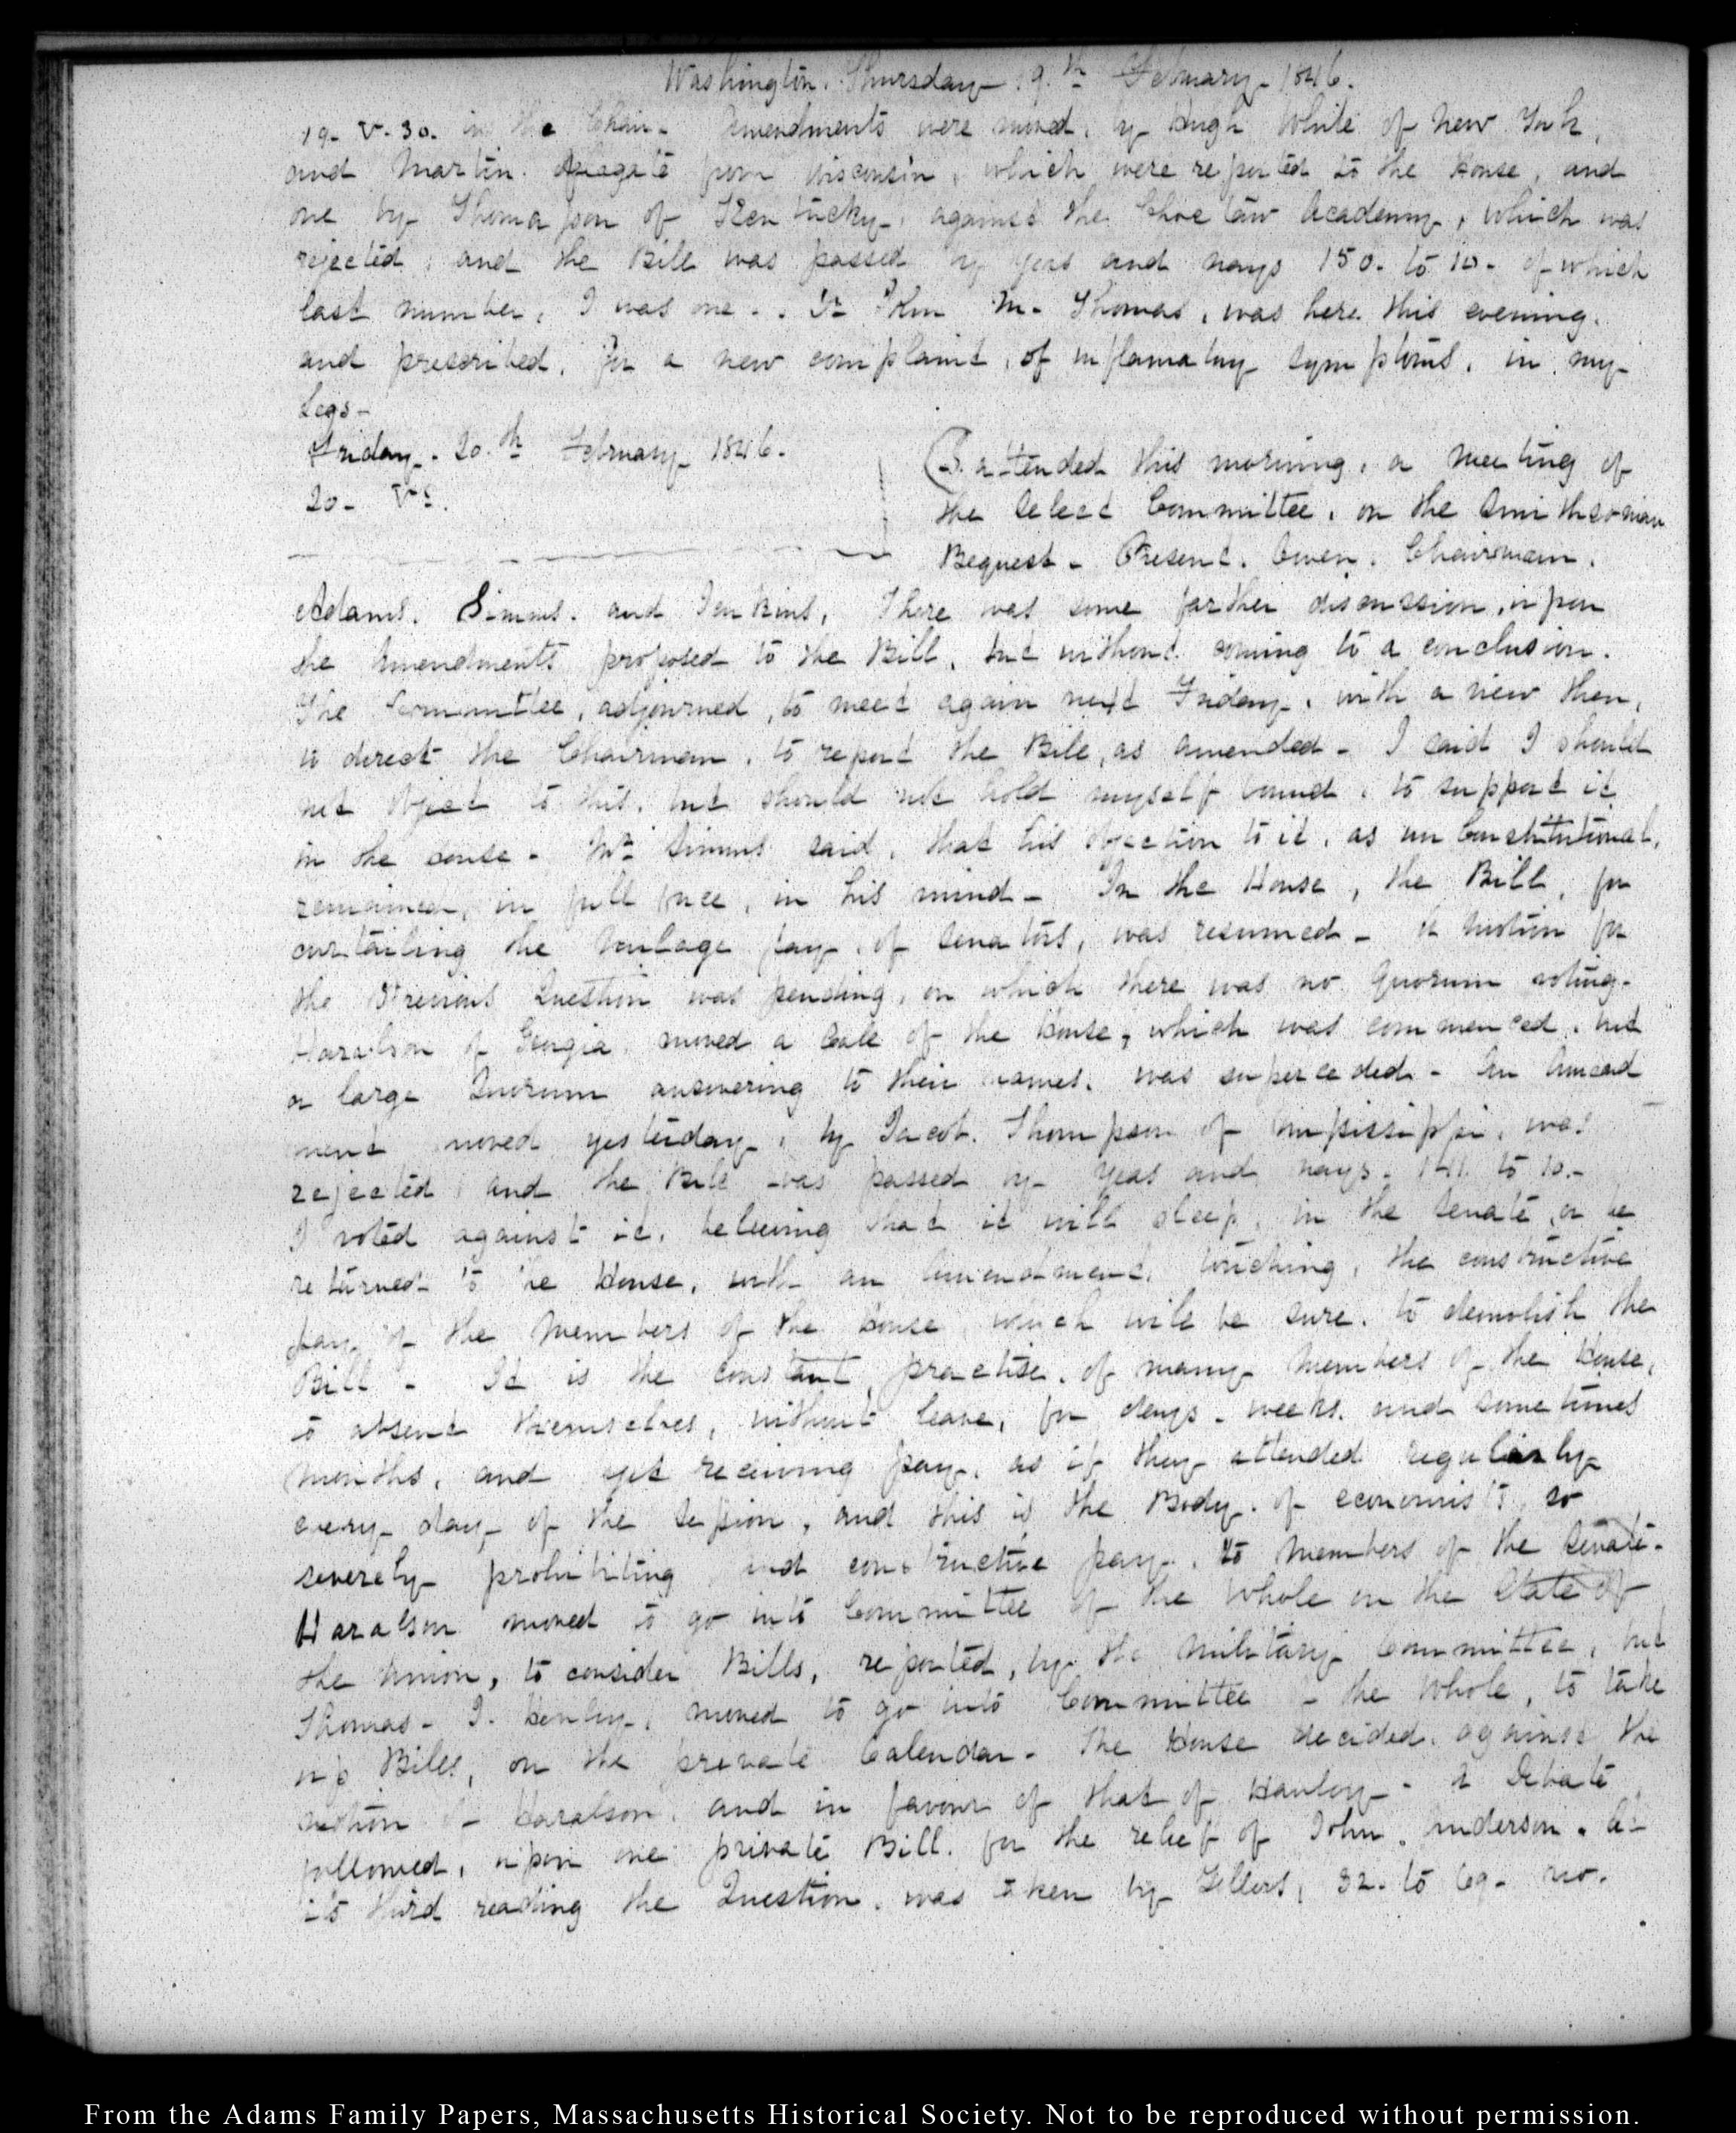 Washington. Thursday 19.th February 1846.
19. V.30. in the Chair. Amendments were moved, by Hugh White of New York,
and Martin delegate from Wisconsin, which were reported to the House, and
one by Thomasson of Kentucky, against the Choctaw Academy, which was
rejected, and the Bill was passed by yeas and nays 150. to 10. of which
last number, I was one. Dr John M. Thomas, was here this evening.
and prescribed, for a new complaint, of inflamatory symptoms, in my
Legs.
Friday. 20.th February 1846.
20. V.
I attended this morning, a meeting of
the select Committee, on the Smithsonian
Bequest. Present. Owen. Chairman.
Adams. Simms. and Jenkins, There was some farther discussion, upon
the Amendments proposed to the Bill, but without coming to a conclusion.
The Committee, adjourned, to meet again next Friday, with a view then,
to direct the Chairman, to report the Bill, as amended. I said I should
not object to this, but should not hold myself bound, to support it
in the House. Mr Simms said, that his objection to it, as unConstitutional,
remained, in full force, in his mind. In the House, the Bill, for
curtailing the mileage pay, of Senators, was resumed. A motion for
the Previous Question was pending, on which there was no Quorum voting.
Haralson of Georgia, moved a Call of the House, which was commenced, but
a large Quorum answering to their names, was superceded. An Amend
ment moved yesterday, by Jacob. Thompson of Mississippi, was
rejected, and the Bill was passed by yeas and nays. to 10.
I voted against it, believing that it will sleep, in the Senate, or be
returned to the House, with an Amendment, touching, the constructive
pay of the Members of the House which will be sure, to demolish the
Bill. It is the constant, practise, of many Members of the House,
to absent themselves, without leave, for days, weeks, and sometimes
months, and yet receiving pay, as if they attended regularly
every day of the Session, and this is the Body, of economists, so
severely prohibiting constructive pay, to Members of the Senate.
Haralson moved to go into Committee of the Whole on the State of
the Union, to consider Bills, reported, by the Military Committee, but
Thomas. J. Henley, moved to go into Committee of the Whole, to take
up Bills, on the private Calendar. The House decided, against the
motion of Haralson, and in favour of that of Henley. A Debate
followed, upon one private Bill, for the relief of John Anderson. At
its third reading the Question, was taken by Tellers, 32. to 69. no.
From the Adams Family Papers, Massachusetts Historical Society. Not to be reproduced without permission.